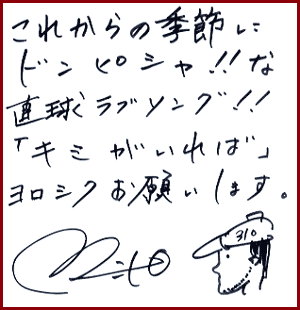 これからの季節に
ドンピシャ!!な
直球ラブソング!!
「キミがいれば」
ヨロシクお願いします。
310